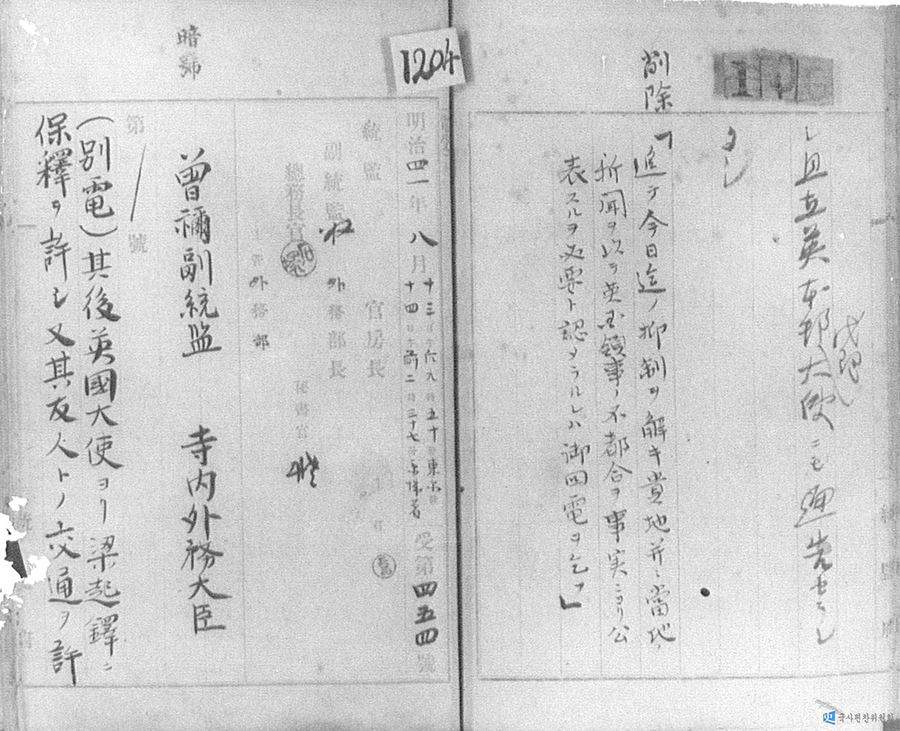 シ且在英本邦大使ニモ通告セラレ
タシ
削除
「追テ今日迄ノ抑制ヲ解キ貴地并ニ當地ノ
新聞ヲ以テ英国領事ノ不都合ヲ事実ニヨリ公
表スルヲ必要ト認メラルレハ御回電ヲ乞フ」
1204
暗號
明治四一年八月
十三日午后九時五十分東京發
十四日午前二時三十七分京城着
受第四五四號
統監
官房長
副統監
外務部長
總務長官
秘書官
主管外務部
第 號
曾禰副統監
寺内外務大臣
(別電)其後英國大使ヨリ梁起鐸ニ
保釋ヲ許シ又其友人トノ交通ヲ許
국사편찬위원회